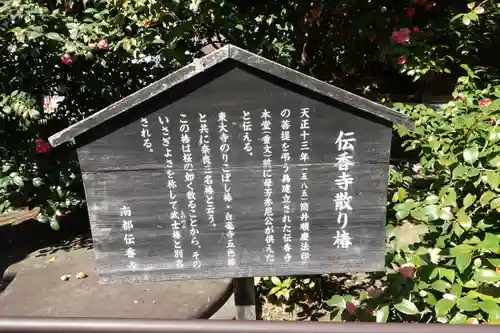 伝香寺散り椿
天正十三年（一五八五）筒井順慶法印
の菩提を弔う為建立された伝香寺
本堂（重文）前に母芳秀尼公が供えた
と伝える。
東大寺のりこぼし椿・白毫寺五色椿
と共に奈良三名椿と云う。
この椿は桜の花びらの如く散ることから、その
いさぎよさを称して武士椿と別名
される。
南都伝香寺